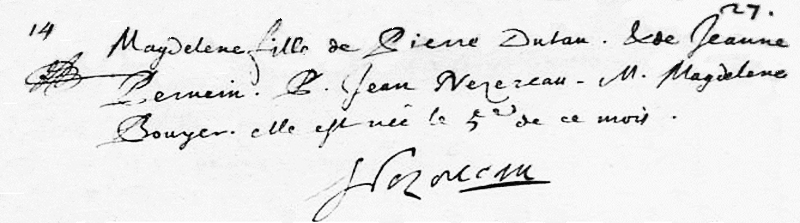 27.
14 Magdelene fille de Pierre Dutau. & de Jeanne
Pernein. P. Jean Nezereau - M. Magdelene
Bouyer. elle est née le 5e de ce mois.
Nezereau